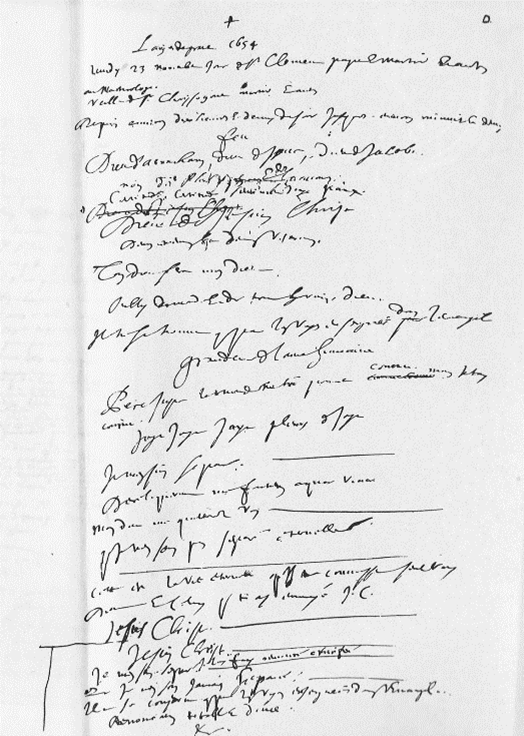 L'an de grace 1654
Lundy 23 novembre jour de St Clement pape et martir et autres
au martirologe
veille de St Chrysogone martir et autres
Depuis environ dix heures et demy du soir jusques environ minuit et demy
feu
Dieu d'Abraham, Dieu d'Isaac, Dieu de Jacob
non des philosophes et scavans.
certitude, certitude, sentiment, joye, paix.
Dieu de Jesus Christ
Deum meum et deum vestrum.
Ton Dieu sera mon Dieu
Oubly du monde et de tout hormis Dieu
Il ne se trouve que par les voyes enseignées dans l'Evangile
grandeur de l'ame humaine
Pere juste, le monde ne t'a point connu mais je t'ay
connu.
Joye Joye Joye pleurs de joye
Je m'en suis separé.
Dereliquerunt me fontem aquae vivae
mon dieu me quitterez vous
que je n'en sois pas separé eternellement
cette est la vie eternelle qu'ils te connoissent seul vray
Dieu et celuy que tu as envoyé J.C.
Jesus Christ
Jesus Christ.
Je m'en suis separé je l'ay fui renoncé crucifié
que je n'en sois jamais separé
Il ne se conserve que par les voyes enseignées dans l'Evangile.
Renonciation totale et douce